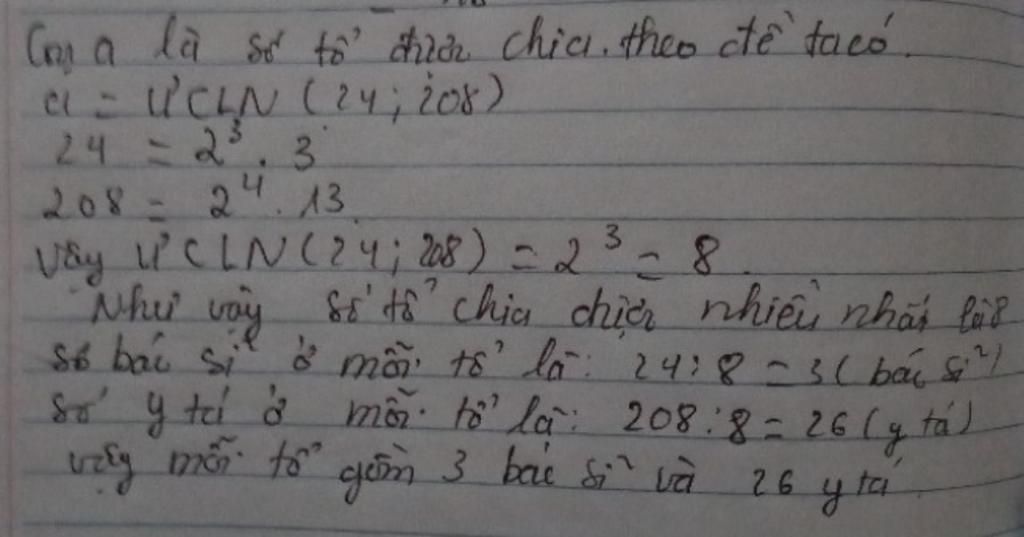 Gọi a là số tổ được chia. theo đề ta có.
a = ƯCLN (24; 208)
24 = 2³. 3
208 = 2⁴. 13.
Vậy ƯCLN(24; 208) = 2³ = 8.
Như vậy số tổ chia được nhiều nhất là 8
số bác sĩ ở mỗi tổ là: 24: 8 = 3( bác sĩ)
số y tá ở mỗi tổ là: 208: 8 = 26 (y tá)
vậy mỗi tổ gồm 3 bác sĩ và 26 y tá